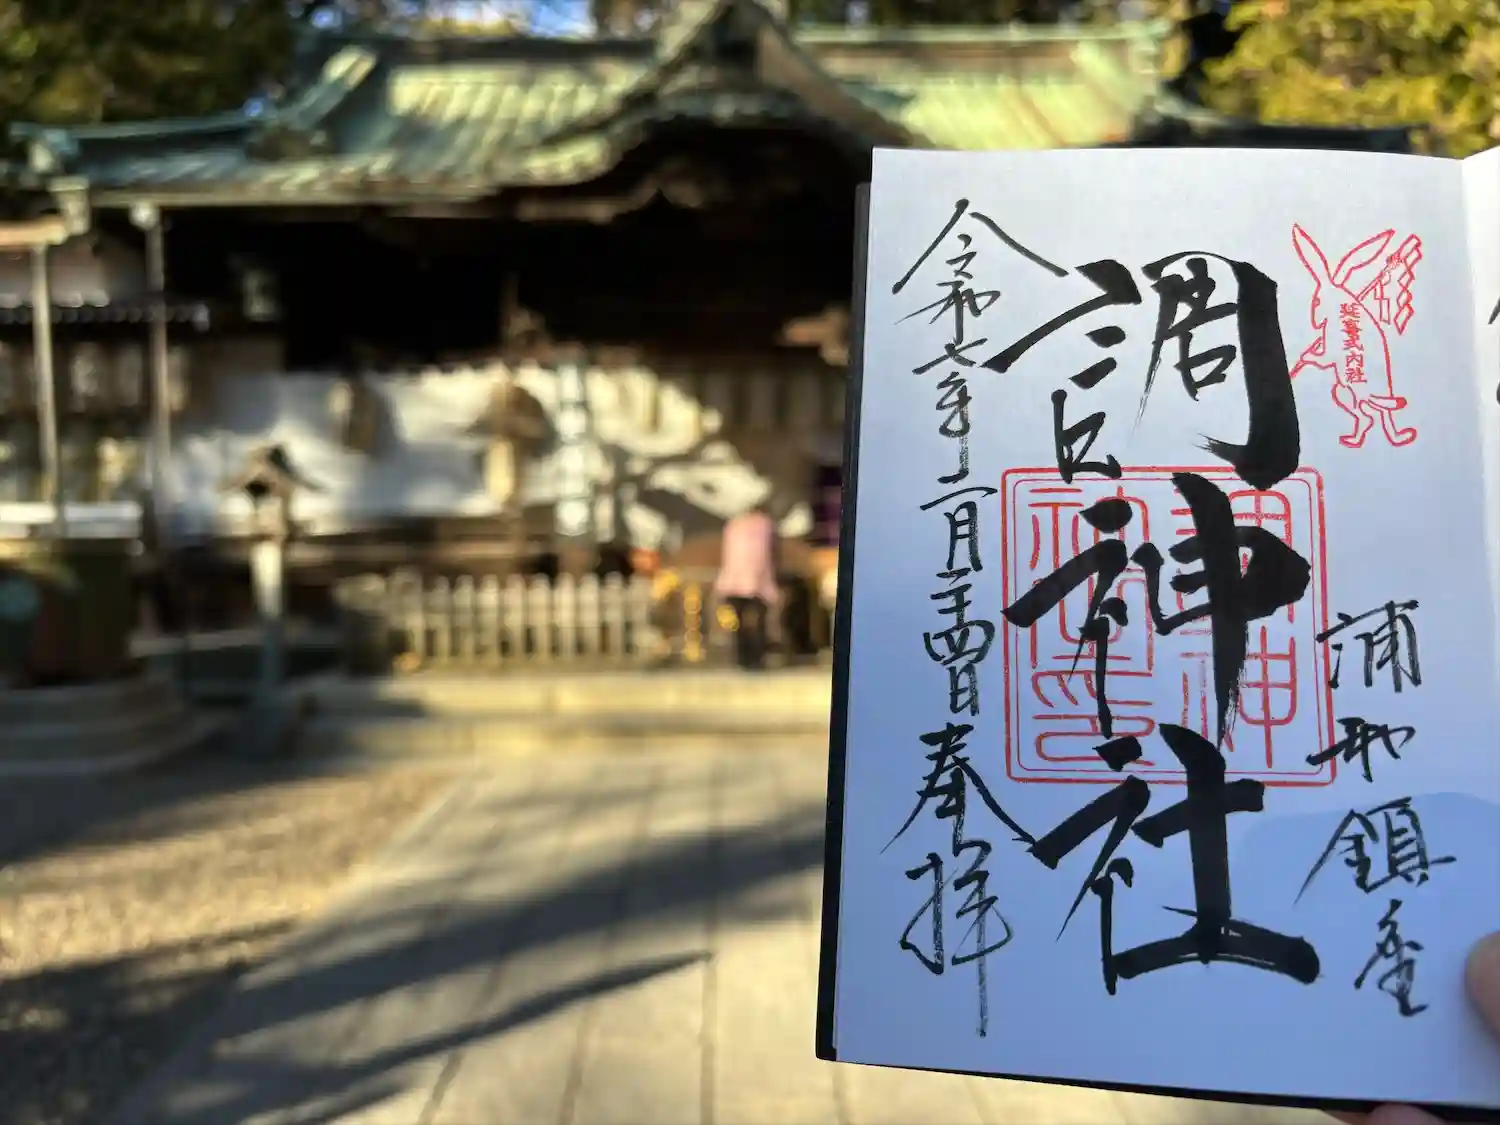 延喜式内社
浦和鎮座
調神社
令和七年二月二十四日奉拝